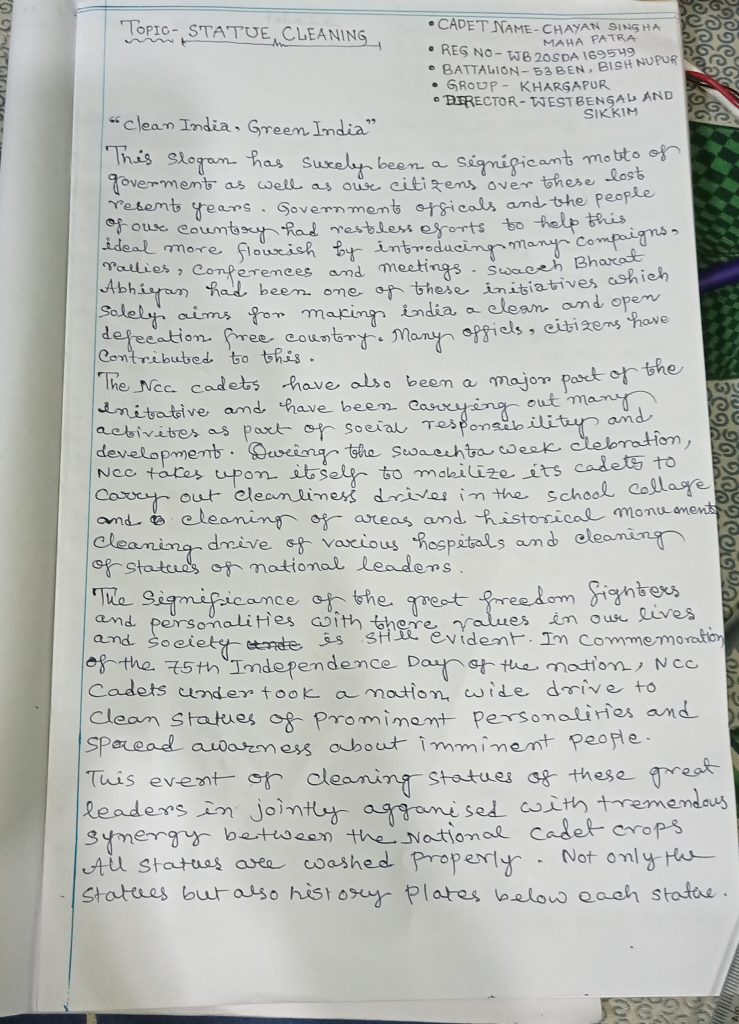 TOPIC- STATUE CLEANING
• CADET NAME- CHAYAN SINGHA
MAHA PATRA
• REG NO- WB20SDA169549
• BATTALION- 53 BEN, BISHNUPUR
• GROUP- KHARGAPUR
• DIRECTOR- WESTBENGAL AND
SIKKIM
"Clean India, Green India"
This slogan has surely been a significant motto of
goverment as well as our citizens over these lost
resent years. Government officals and the people
of our country had restless eforts to help this
ideal more flourish by introducing many campaigns,
rallies, conferences and meetings. Swaceh Bharat
Abhiyan had been one of these initiatives which
Solely aims for making india a clean and open
defecation free country. Many officls, citizens have
Contributed to this.
The Ncc cadets have also been a major part of the
initative and have been carrying out many
activites as part of social responsibility and
development. During the swacchta week clebration,
NCC takes upon itself to mobilize its cadets to
carry out cleanliness drives in the school collage
and cleaning of areas and historical monuments
cleaning drive of various hospitals and cleaning
of statues of national leaders.
The Significance of the great freedom fighters
and personalities with there values in our lives
and society is still evident. In commemoration
of the 75th Independence Day of the nation, NCC
Cadets under took a nation wide drive to
clean statues of prominent personalities and
spread awarness about imminent people.
This event of cleaning statues of these great
leaders in jointly agganised with tremendous
synergy between the National cadet crops
All statues are washed properly. Not only the
statues but also history plates below each statue.